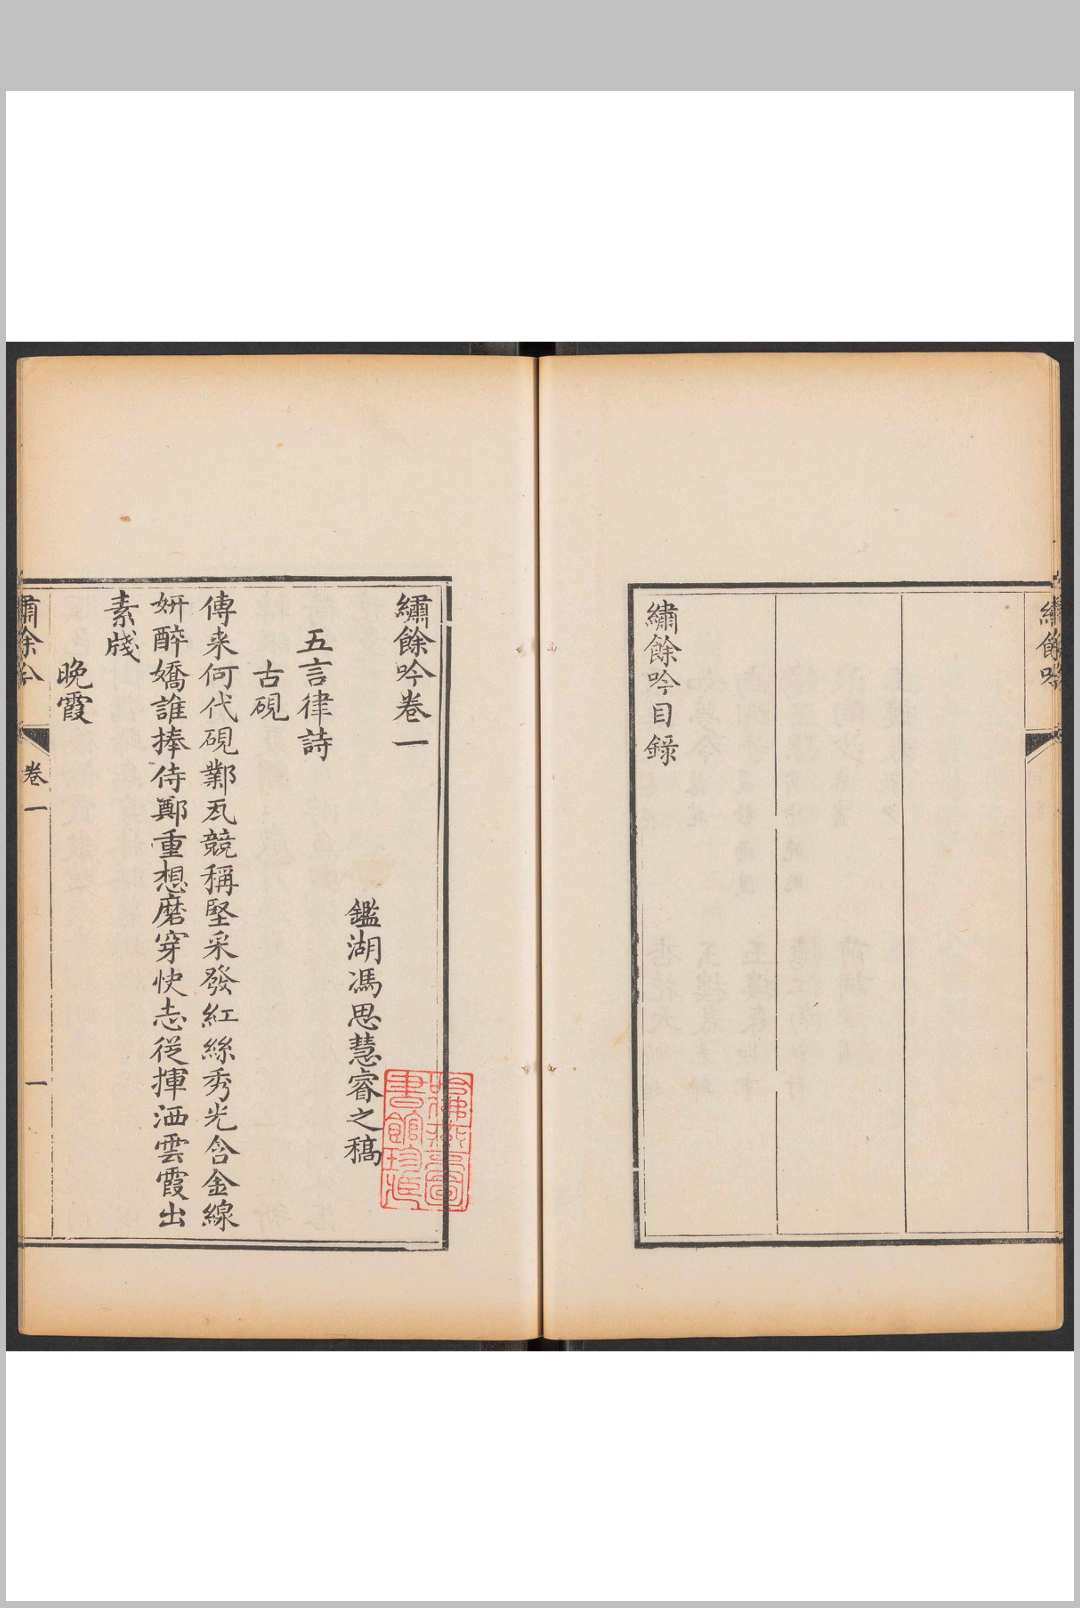 繡餘吟
繡餘吟目錄
繡餘吟卷一
鑑湖馮思慧睿之稿
五言律詩
古硯
傳来何代硯鄴瓦競稱堅采發紅絲秀光含金線
妍醉嬌誰捧侍鄭重想磨穿快志從揮洒雲霞出
素牋
晚霞
繡餘吟
卷一
一
哈佛燕京圖
書館珍藏